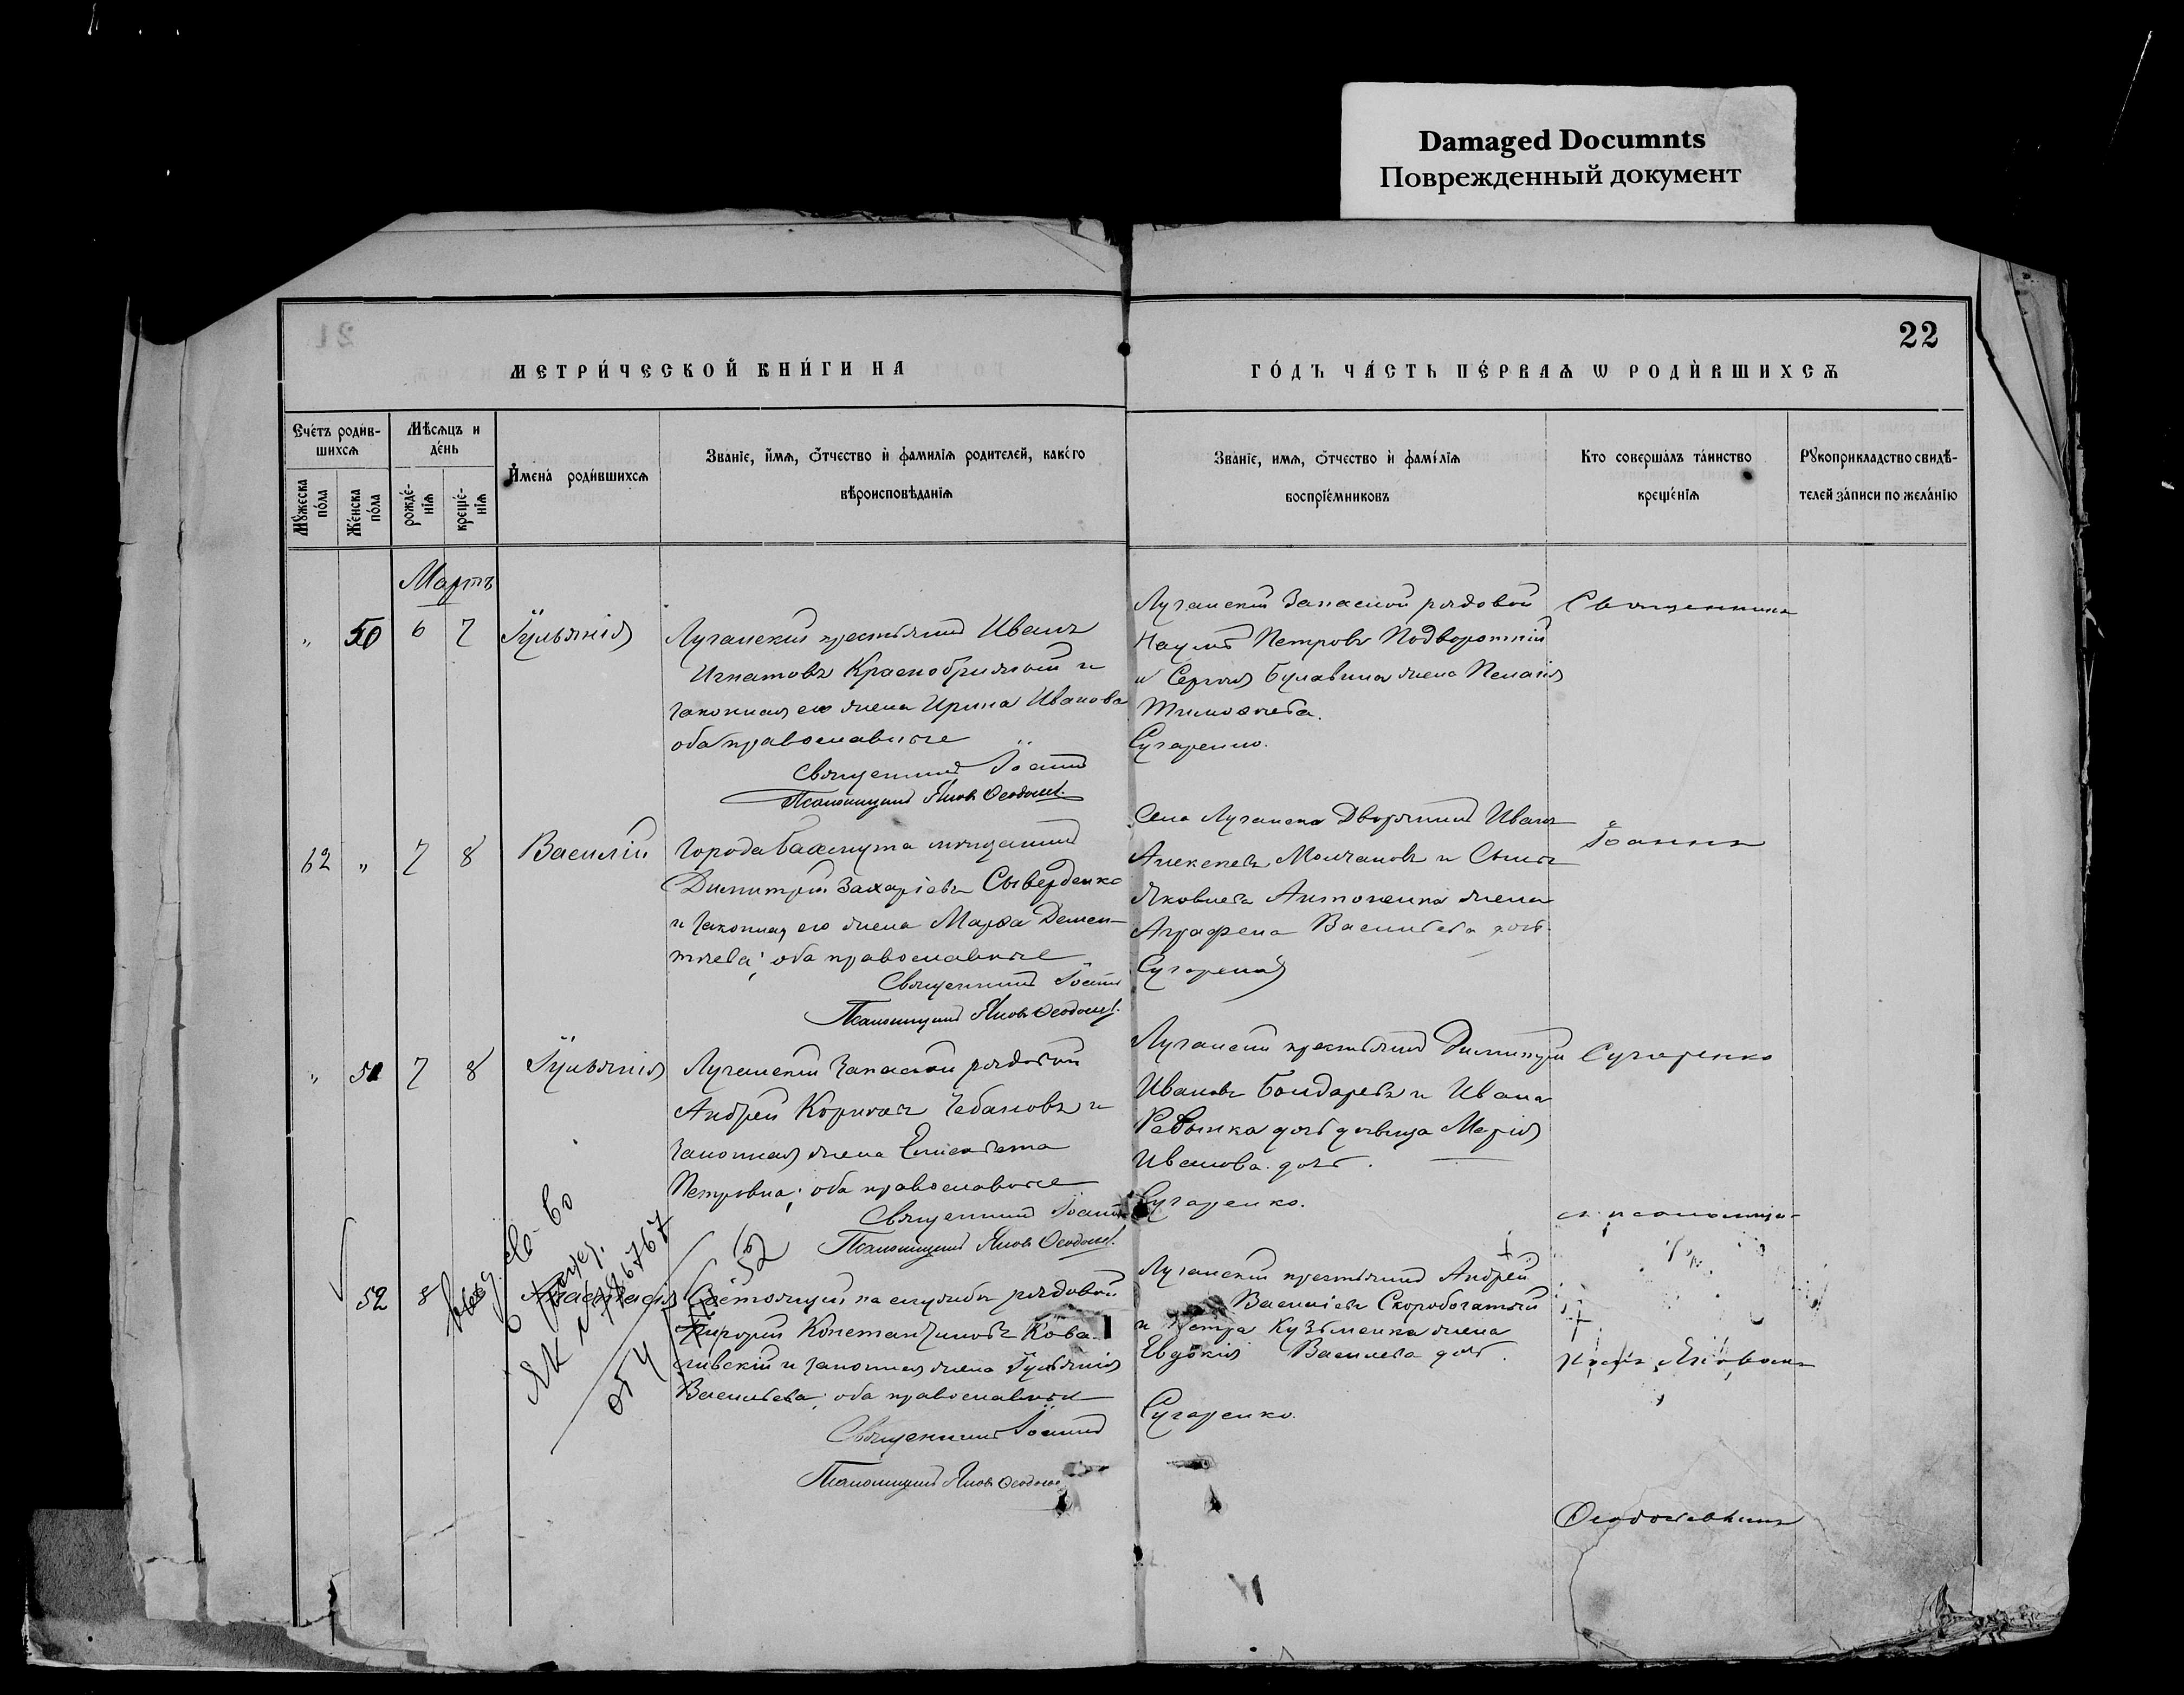 Damaged Documnts
Поврежденный документ
22
МЕТРИ́ЧЕСКОЙ КНИ́ГИ НА
ГО́ДЪ ЧА́СТЬ ПЕ́РВАѦ Ѡ РОДИ́ВШИХСѦ
Сче́тъ роди́в-
шихсѧ
Мꙋ́жеска по́ла
Же́нска по́ла
Мѣ́сѧцъ и
де́нь
рожде́-
нїѧ
креще́-
нїѧ
И҆мена̀ роди́вшихсѧ
Зва́нїе, и҆́мѧ, ѻ҆́тчество и҆ фами́лїѧ роди́телей, како́го
вѣроисповѣ́данїѧ
Зва́нїе, и҆́мѧ, ѻ҆́тчество и҆ фами́лїѧ
воспрїе́мниковъ
Кто соверша́лъ та́инство
креще́нїѧ
Рꙋкоприкла́дство свидѣ́-
телей за́писи по жела́нїю
Мартъ
" 50 6 7 Іульянія
Луганский крестьянинъ Иванъ
Игнатовъ Краснобрижый и
законная его жена Ирина Иванова
оба православные
Священникъ Іоаннъ
Псаломщикъ Яковъ Ѳеодосіев.
Луганскій запасной рядовой
Наумъ Петровъ Подворотній
и Сергія Булавина жена Пелагія
Тимоѳеева.
Сухаренко.
Священникъ
62 " 7 8 Василій
Города Бахмута мѣщанинъ
Димитрій Захаріевъ
и законная его жена Марѳа Демен-
тьева; оба православные
Священникъ Іоаннъ
Псаломщикъ Яковъ Ѳеодосіев.
Села Луганска Дворянинъ Иванъ
Алексеевъ Молчановъ и
Яковлева Антоненка жена
Аграфена Васильева
Іоаннъ
" 51 7 8 Іульянія
Луганскій запасной рядовой
Андрей Чебановъ и
законная жена Елисавета
Петровна; оба православные
Священникъ Іоаннъ
Псаломщикъ Яковъ Ѳеодосіев.
Луганскій крестьянинъ Димитрій
Ивановъ Бондаревъ и Ивана
дочь дѣвица Марія
Иванова дочь.
Сухаренко.
Сухаренко
съ псаломщи-
52 8 Анастасія
Состоящій на службѣ рядовой
Григорій Константиновъ Кова-
ливскій и законная жена Іульянія
Васильева; оба православные
Священникъ Іоаннъ
Псаломщикъ Яковъ Ѳеодосіев
Луганскій крестьянинъ Андрей
Василіевъ Скоробогатый
и Петра Кузьменка жена
Евдокія Василева доч.
Сухаренко.
Яковомъ